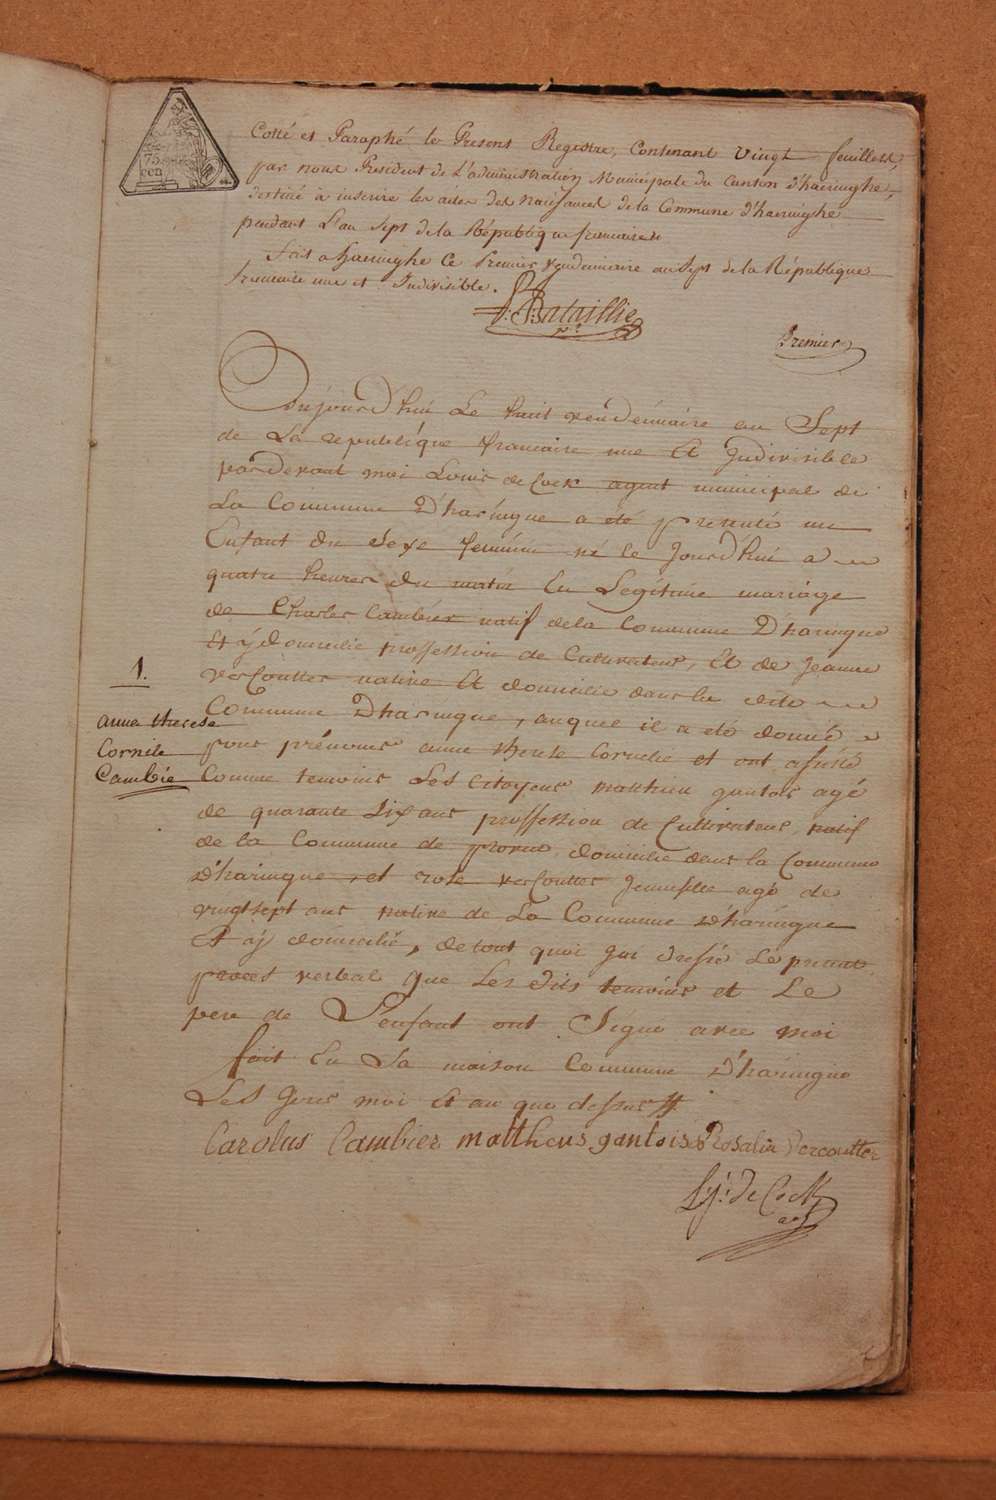 75
cen
Cotté et Paraphé le Present Registre, Contenant vingt feuillets,
par nous President de L'administration Municipale du Canton d'haeringhe,
destiné à inscrire les actes des naissances de la Commune d'haeringhe
pendant L'an Sept de la République francaise
Fait a haeringhe Ce Premier Vendemiaire an Sept de la République
francaise une et Indivisible.
Bataillie
pt
Premier
Aujourd'hui Le huit vendémiaire an Sept
de La republique francaise une Et Indivisible
pardevant moi Louis de Cock agent municipal de
La Commune D'haringue a été presenté un
Enfant du Sexe feminin né le Jourd'hui a
quatre heures du matin En Legitime mariage
de Charles Cambier natif de la Commune D'haringue
Et ÿ domicilie proffession de Cultivateur, Et de Jeanne
verCoutter native Et domicilié dans la dite
Commune D'haringue, auquel il a été donné
pour prénoms anne therese Cornelie et ont assisté
Comme temoins Les Citoyens matthieu gantois agé
de quarante Six ans proffession de Cultivateur natif
de la Commune de proven domicilié dans la Commune
D'haringue, et rose verCoutter Jeunefille agé de
vingtsept ans native de La Commune D'haringue
Et aÿ domicilié, de tout quoi Jai dressé Le present
procès verbal que Les dits temoins et Le
pere de L'enfant ont Signé avec moi
fait En La maison Commune D'haringue
Les Jour moi Et an que dessus
1.
anna therese
Cornile
Cambie
Carolus Cambier mattheus gantois Rosalia Vercoutter
L: J: de Cock
agt